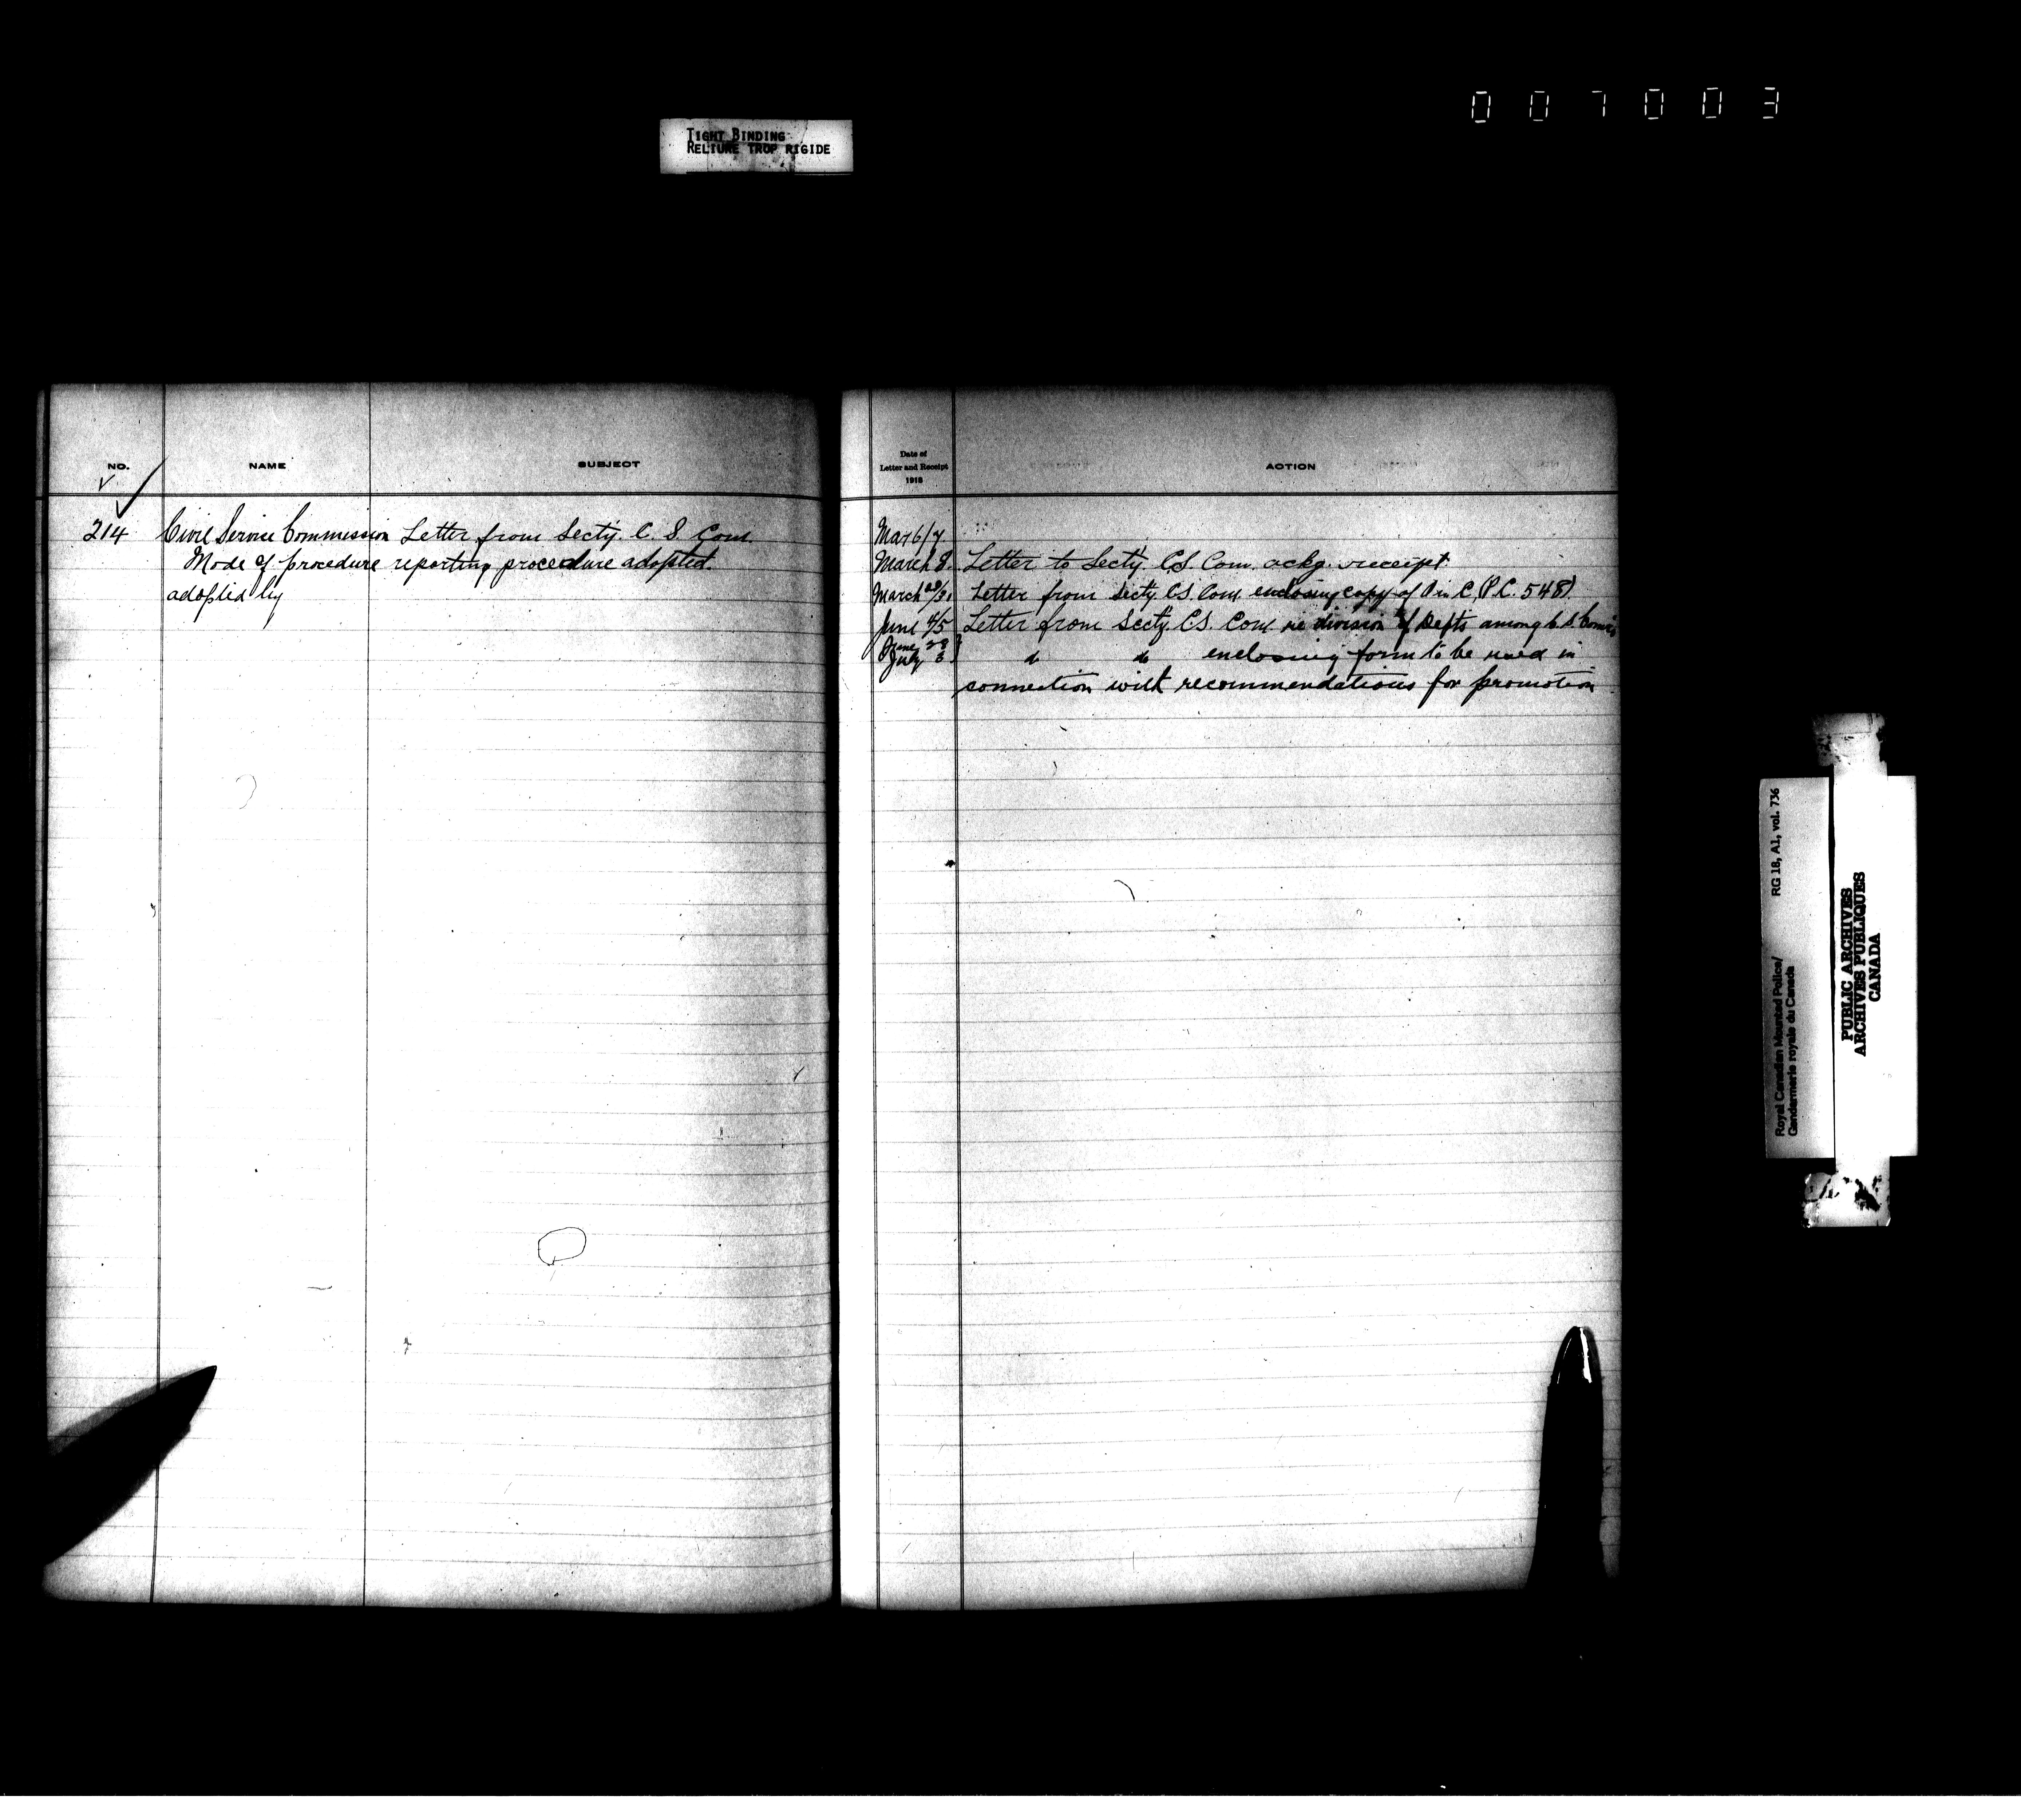 007003
TIGHT BINDING
RELIURE TROP RIGIDE
NO.
NAME
SUBJECT
214
Civil Service Commission
Mode of procedure
adopted by
Letter from Secty. C. S. Com
reporting procedure adopted.
Date of
Letter and Receipt
1918
ACTION
Mar 6/7.
March 8. Letter to Secty. C.S. Com. ackg. receipt
March 28/30 Letter from Secty. C.S. Com. enclosing copy of O in C. (P.C. 548)
June 4/5 Letter from Secty. C.S. Com re division of Depts among C. S. Comrs
June 28
July 3 do do enclosing form to be used in
connection with recommendations for promotion
Royal Canadian Mounted Police/ RG 18, A1, vol. 736
Gendarmerie royale du Canada
PUBLIC ARCHIVES
ARCHIVES PUBLIQUES
CANADA